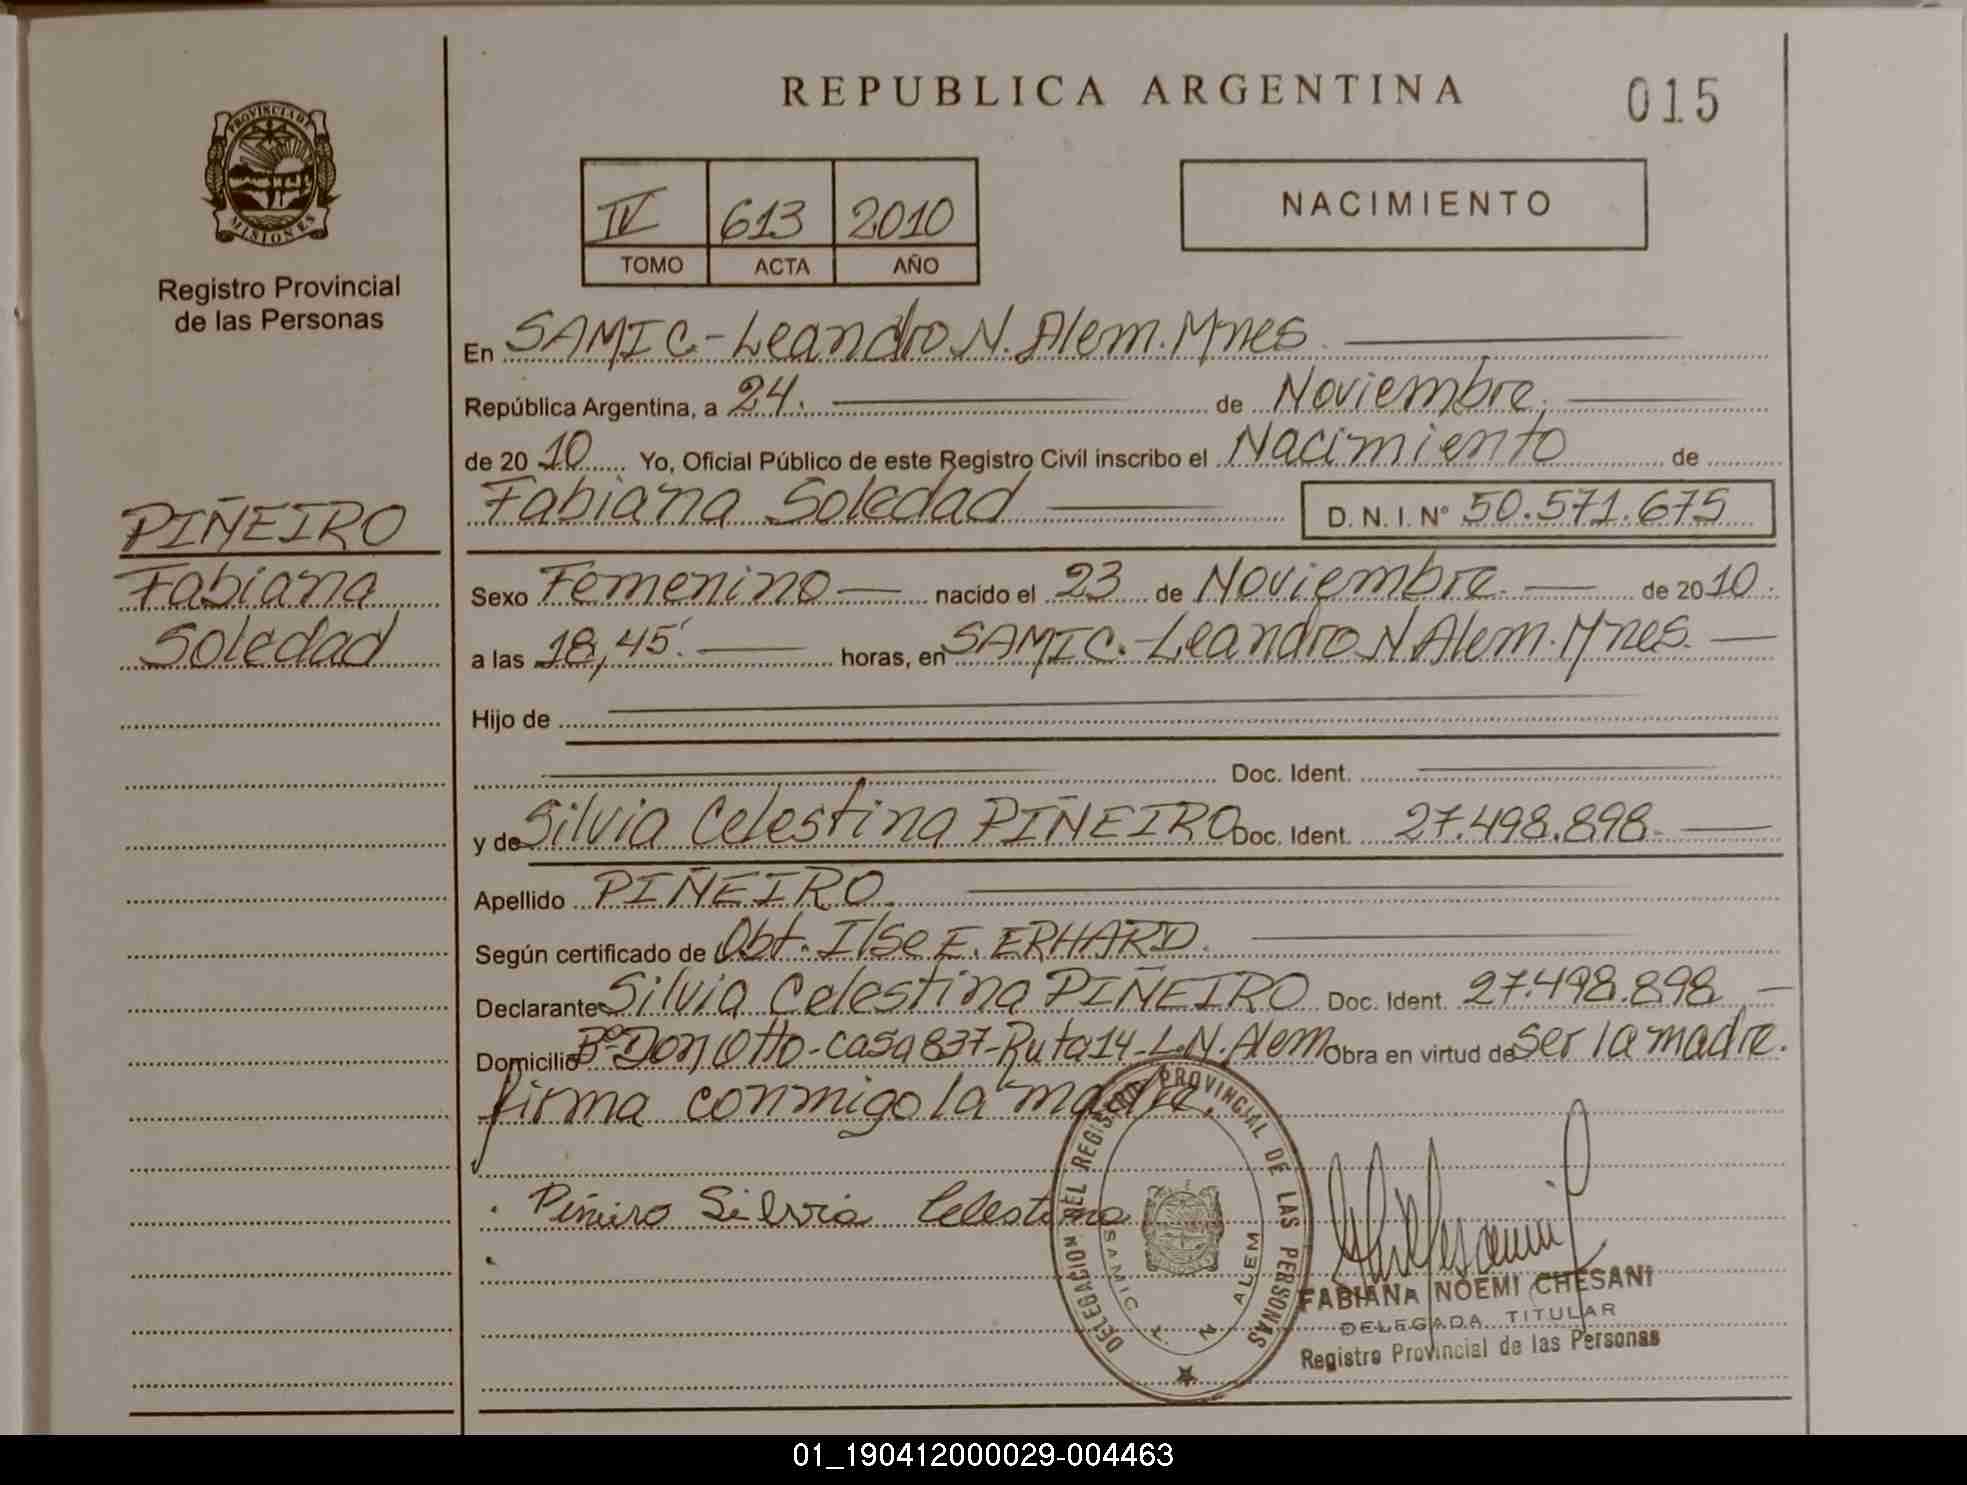 REPUBLICA ARGENTINA
015
PROVINCIA DE
MISIONES
Registro Provincial
de las Personas
IV 613 2010
TOMO ACTA AÑO
NACIMIENTO
En SAMIC-Leandro N. Alem. Mnes.
República Argentina, a 24. de Noviembre,
de 2010 Yo, Oficial Público de este Registro Civil inscribo el Nacimiento de
Fabiana Soledad D.N.I. Nº 50.571.675
PIÑEIRO
Fabiana
Soledad
Sexo Femenino nacido el 23 de Noviembre. de 2010.
a las 18,45'. horas, en SAMIC.-Leandro N Alem. Mnes.
Hijo de
Doc. Ident.
y de Silvia Celestina PIÑEIRO Doc. Ident. 27.498.898.
Apellido PIÑEIRO.
Según certificado de Obt. Ilse E. ERHARD.
Declarante Silvia Celestina PIÑEIRO Doc. Ident. 27.498.898
Domicilio Bº Don Otto-casa 837-Ruta 14-L.N. Alem Obra en virtud de ser la madre.
firma conmigo la madre.
Piñeiro Silvia Celestina
DELEGACION DEL REGISTRO PROVINCIAL DE LAS PERSONAS
SAMIC L. N. ALEM
FABIANA NOEMI CHESANI
DELEGADA TITULAR
Registro Provincial de las Personas
01_190412000029-004463